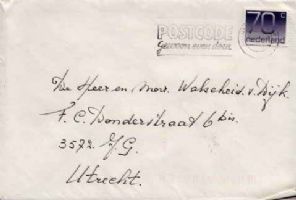 POSTCODE
Gewoon even doen
70 c
nederland
De Heer en Mevr. Walscheid v. Dijk
F.C. Donderstraat 6 bis.
3572 J.G.
Utrecht.